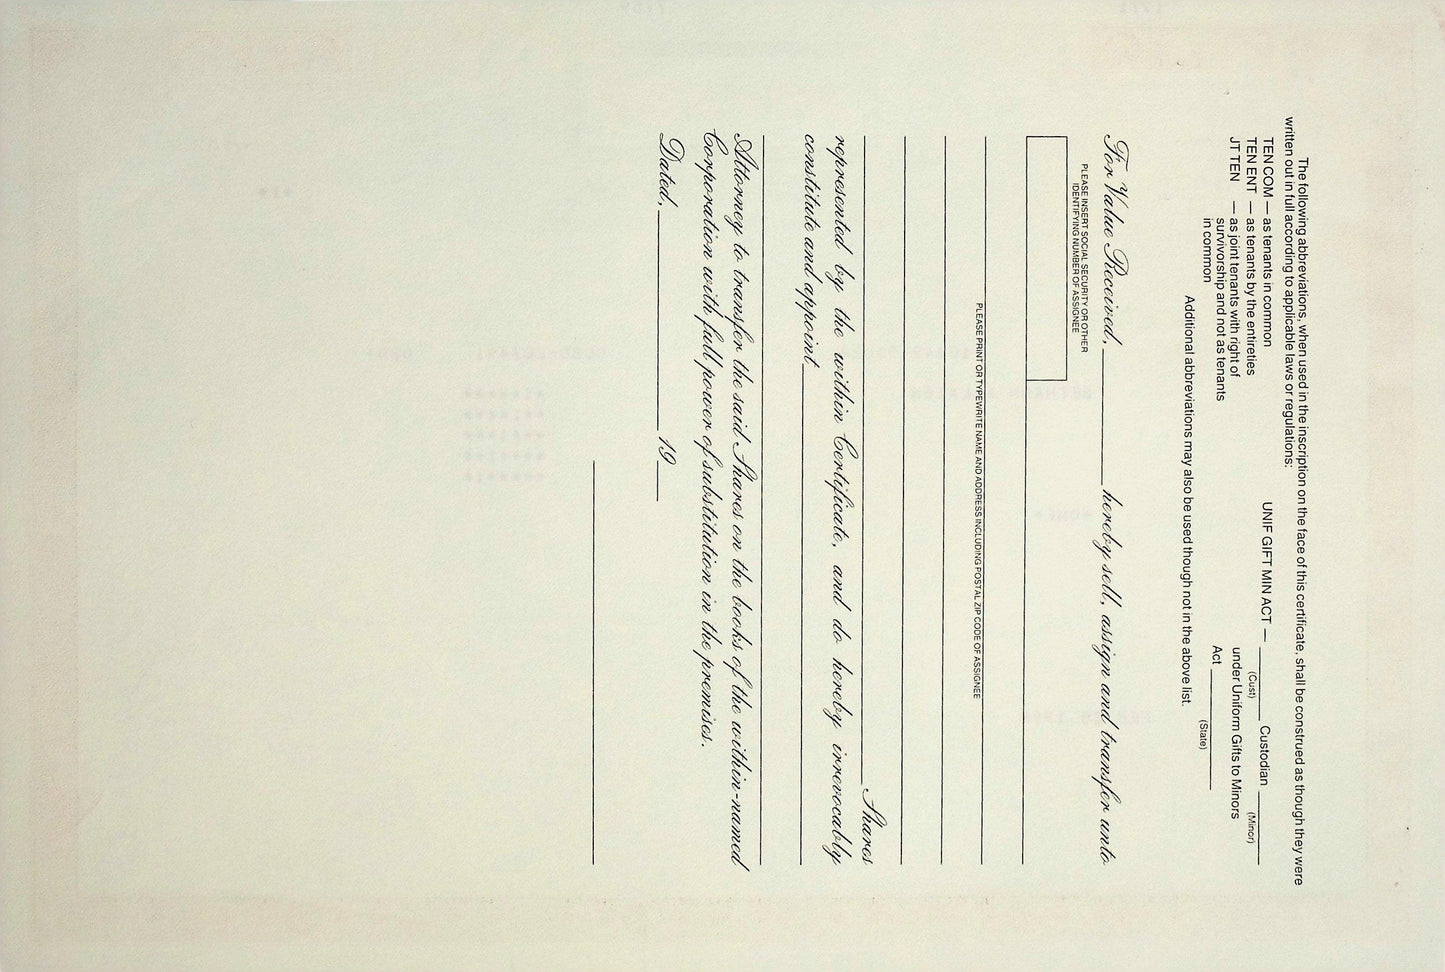 The following abbreviations, when used in the inscription on the face of this certificate, shall be construed as though they were
written out in full according to applicable laws or regulations:
TEN COM — as tenants in common
TEN ENT — as tenants by the entireties
JT TEN — as joint tenants with right of
survivorship and not as tenants
in common
UNIF GIFT MIN ACT — ________ Custodian ________
(Cust) (Minor)
under Uniform Gifts to Minors
Act ________
(State)
Additional abbreviations may also be used though not in the above list.
For Value Received, ________ hereby sell, assign and transfer unto
PLEASE INSERT SOCIAL SECURITY OR OTHER
IDENTIFYING NUMBER OF ASSIGNEE
PLEASE PRINT OR TYPEWRITE NAME AND ADDRESS INCLUDING POSTAL ZIP CODE OF ASSIGNEE
________ Shares
represented by the within Certificate, and do hereby irrevocably
constitute and appoint ________
Attorney to transfer the said Shares on the books of the within-named
Corporation with full power of substitution in the premises.
Dated, ________ 19____